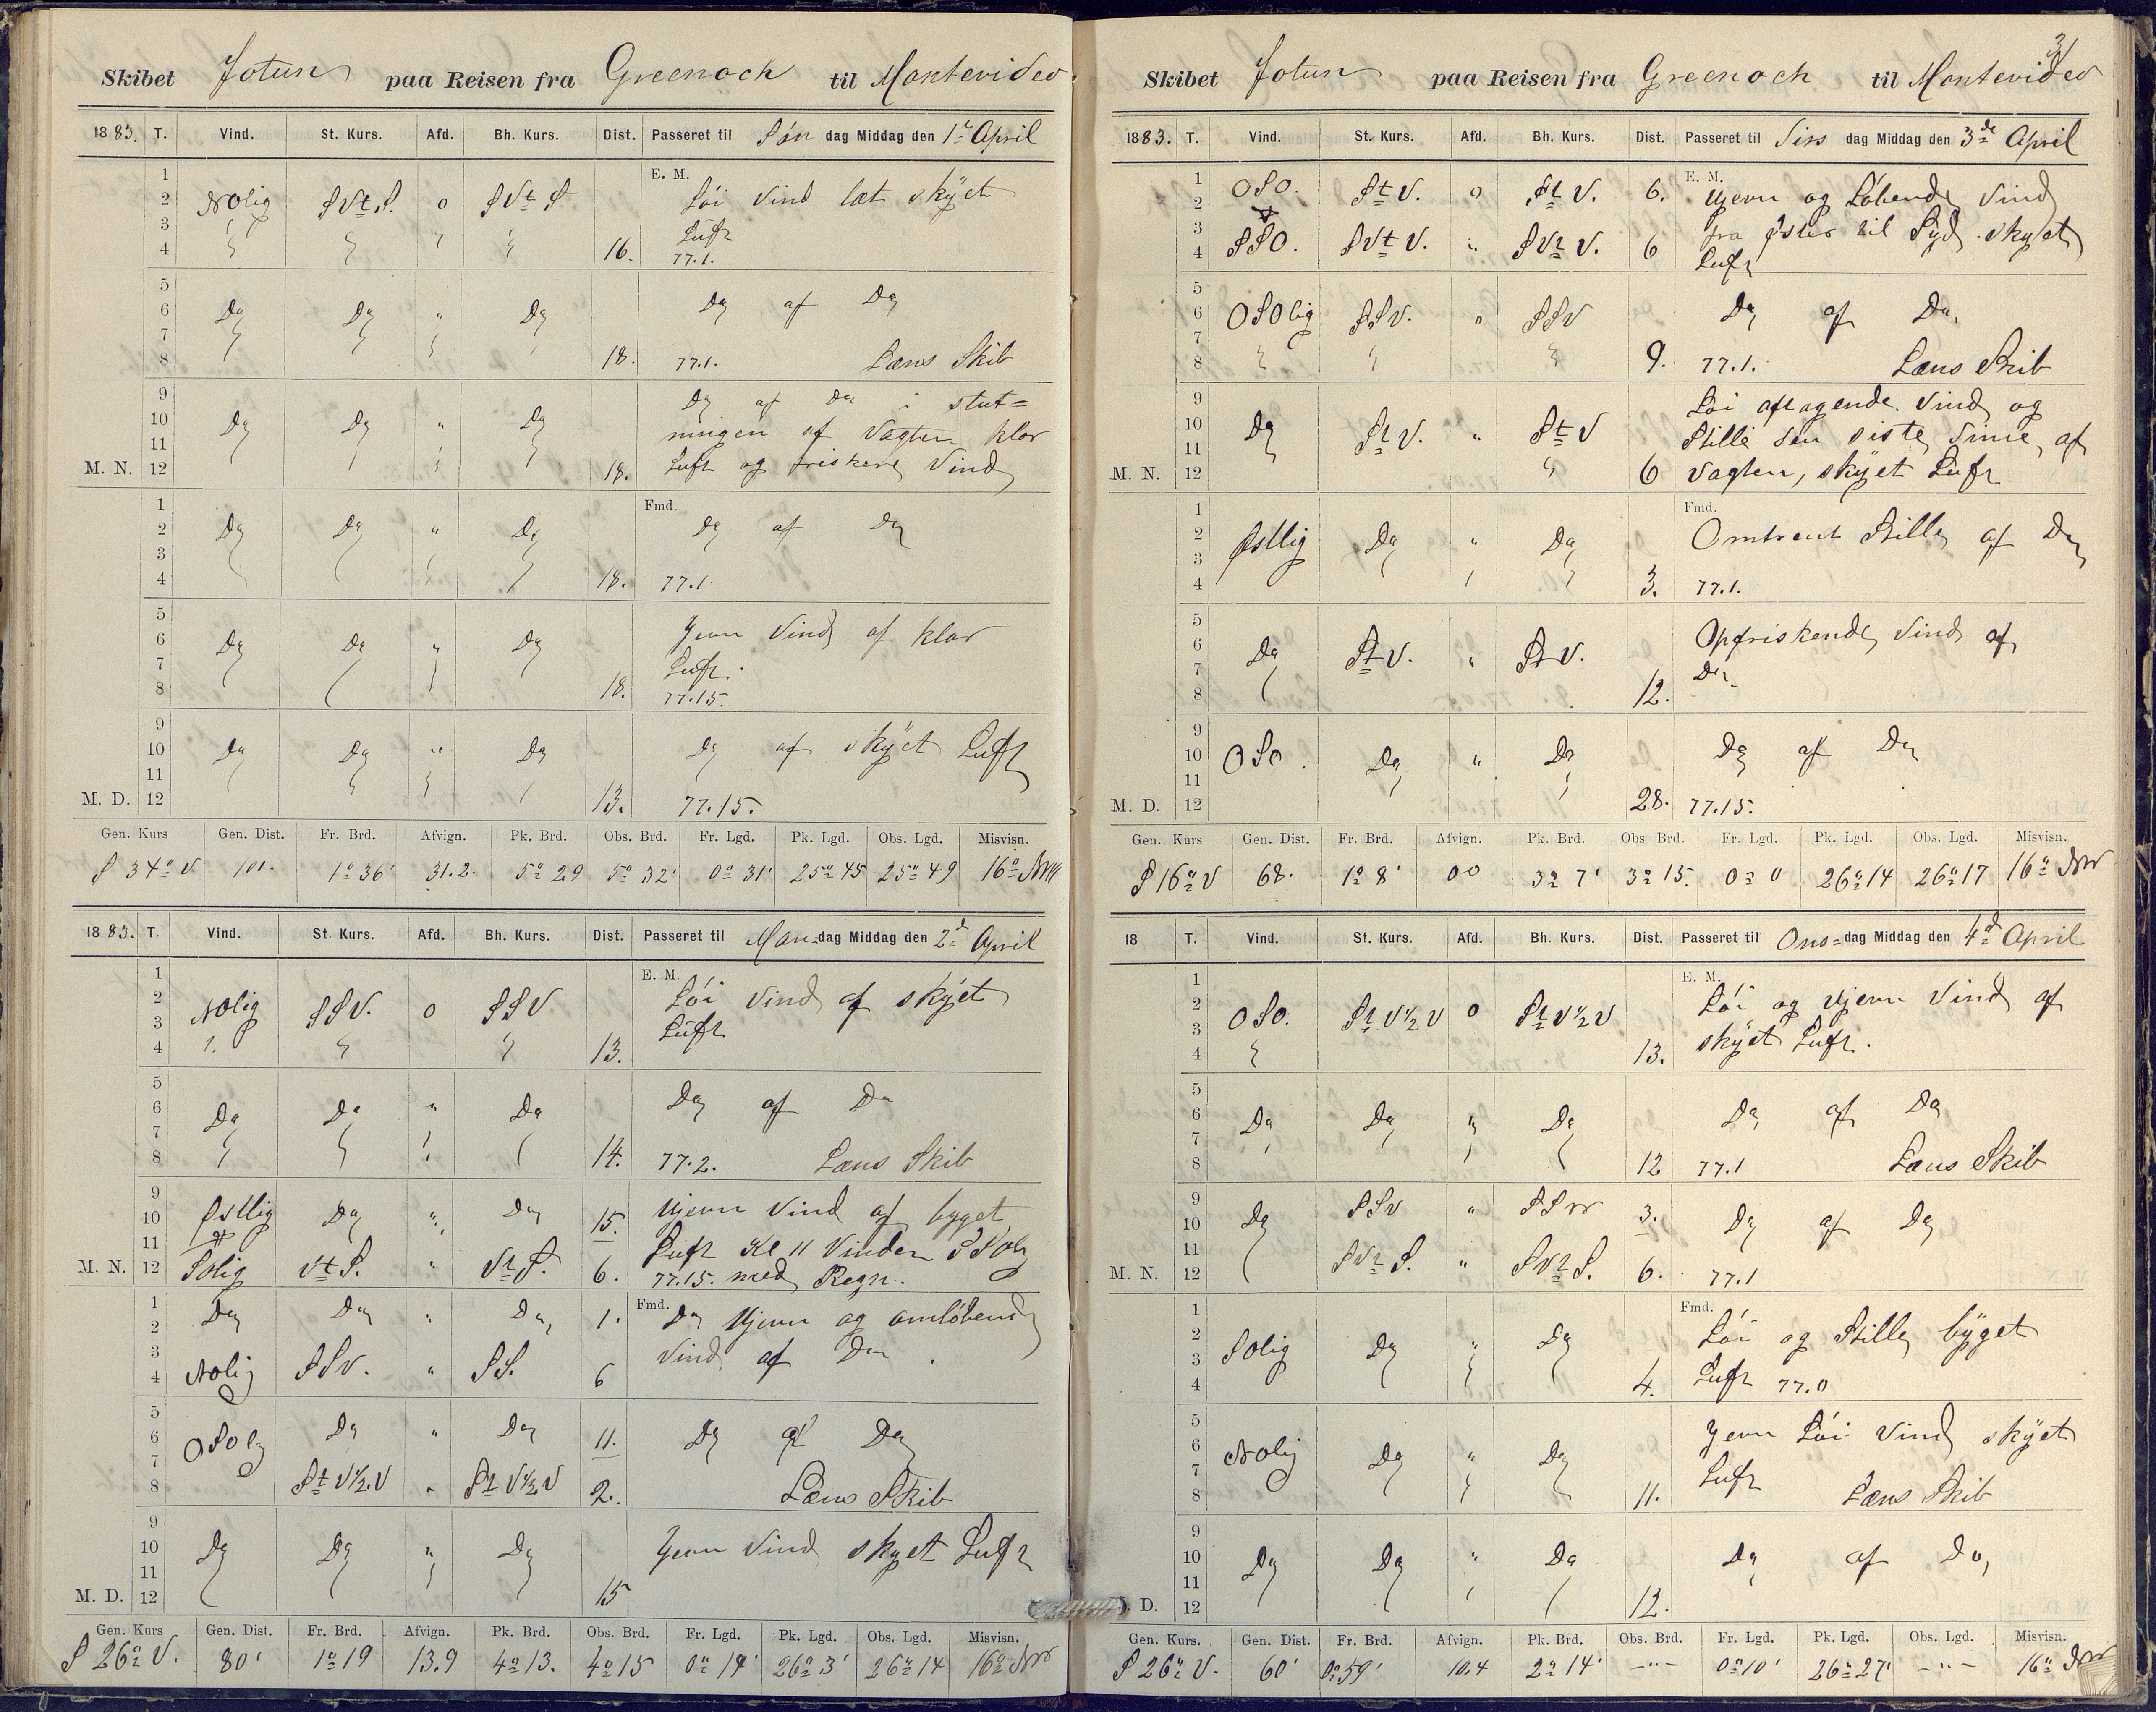 Skibet Jotun paa Reisen fra Greenock til Montevideo
1883. T. Vind. St. Kurs. Afd. Bh. Kurs. Dist. Passeret til Søn dag Middag den 1ste April
1 E. M.
2 NOlig SVt.S. 0 SVt S Løi Vind let skÿet
3 Luft
4 16. 77.1.
5
6 Do Do " Do Do af Do
7
8 18. 77.1. Læns Skib
9 Do af Do i slut=
10 Do Do " Do ningen af Vagten klar
11
M. N. 12 18. Luft og friskere Vind
1 Fmd.
2 Do Do " Do Do af Do
3
4 18. 77.1.
5
6 Do Do " Do Jevn Vind af klar
7 Luft.
8 18. 77.15.
9
10 Do Do " Do Do af skÿet Luft
11
M. D. 12 13. 77.15.
Gen. Kurs Gen. Dist. Fr. Brd. Afvign. Pk. Brd. Obs. Brd. Fr. Lgd. Pk. Lgd. Obs. Lgd. Misvisn.
S 34° V 101. 1° 36' 31.2. 5° 29 5° 32' 0° 31' 25° 45 25° 49 16° NW
1883. T. Vind. St. Kurs. Afd. Bh. Kurs. Dist. Passeret til Man=dag Middag den 2d April
1 E. M.
2 NOlig SSV. 0 SSV Løi Vind af skÿet
3 Luft
4 13.
5
6 Do Do " Do Do af Do
7
8 14. 77.2. Læns Skib
9
10 Østlig Do " Do 15. Ujevn Vind af byget
11 Luft Kl 11 Vinden SSOlg
M. N. 12 SOlig Vt S. " Vt S. 6. 77.15. med Regn.
1 Fmd.
2 Do Do " Do 1. Do Ujevn og omløbende
3 Vind af Do
4 NOlig SSV. " SS. 6
5
6 OSOlg Do " Do 11. Do af Do
7
8 St V½V " St V½V 2. Læns Skib
9
10 Do Do " Do Jevn Vind skyet Luft
11
M. D. 12 15
Gen. Kurs Gen. Dist. Fr. Brd. Afvign. Pk. Brd. Obs. Brd. Fr. Lgd. Pk. Lgd. Obs. Lgd. Misvisn.
S 26° V. 80' 1° 19 13.9 4° 13. 4° 15 0° 14' 26° 3' 26° 14 16° NW
3
Skibet Jotun paa Reisen fra Greenock til Montevideo
1883. T. Vind. St. Kurs. Afd. Bh. Kurs. Dist. Passeret til Tirs dag Middag den 3de April
1 E. M.
2 OSO. St V. 0 St V. 6. Ujevn og Løbende Vind
3 fra Øster til Syd skyet
4 SSO. SVt V. " SVt V. 6 Luft
5
6 OSOlig SSV. " SSV Do af Do.
7
8 9. 77.1. Læns Skib
9 Løi aftagende Vind og
10 Do St V. " St V Stille den siste Time af
11
M. N. 12 6 Vagten, skÿet Luft
1 Fmd.
2 Østlig Do " Do Omtrent Stille af Do
3
4 3. 77.1.
5
6 Do St V. " St V. Opfriskende Vind af
7 Do
8 12.
9
10 OSO. Do " Do Do af Do
11
M. D. 12 28. 77.15.
Gen. Kurs Gen. Dist. Fr. Brd. Afvign. Pk. Brd. Obs Brd. Fr. Lgd. Pk. Lgd. Obs. Lgd. Misvisn.
S 16° V 68. 1° 8' 00 3° 7' 3° 15. 0° 0 26° 14 26° 17 16° NW
18 T. Vind. St. Kurs. Afd. Bh. Kurs. Dist. Passeret til Ons=dag Middag den 4d April
1 E. M.
2 OSO. St V½V 0 St V½V Løi og Ujevn Vind af
3 skÿet Luft.
4 13.
5
6 Do Do " Do Do af Do
7
8 12 77.1 Læns Skib
9
10 Do SSV " SSW 3. Do af Do
11
M. N. 12 SVt S. " SVt S. 6. 77.1
1 Fmd.
2 SOlig Do " Do Løi og Stille bÿget
3
4 4. Luft 77.0
5
6 NOlig Do " Do Jevn Løi Vind skÿet
7 Luft
8 11. Læns Skib
9
10 Do Do " Do Do af Do
11
D. 12 12.
Gen. Kurs. Gen. Dist. Fr. Brd. Afvign. Pk. Brd. Obs. Brd. Fr. Lgd. Pk. Lgd. Obs. Lgd. Misvisn.
S 26° V. 60' 0° 59' 10.4 2° 14' —"— 0° 10' 26° 27' —"— 16° NW